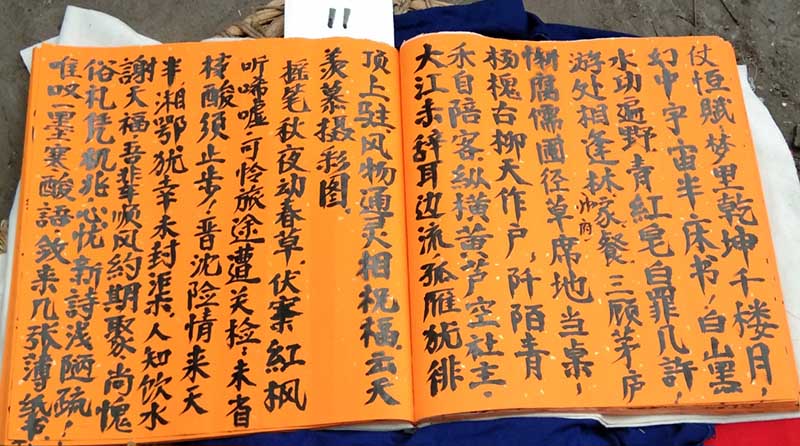 11
仗恒赋,梦里乾坤千楼月,
幻中宇宙半床书!白山黑
水功遍野,青红皂白罪几许!
游处相逢林家餐,三顾茅庐
帅府
惭腐儒圃径草席地当桌,
杨槐古柳天作户,阡陌青
禾自陪客,纵横黄芦空社主.
大江未辞耳边流孤雁犹徘
顶上驻,风物溥天相祝福,云天
羡慕摄彩图.
摇笔秋夜动春草,伏案红枫
听唏嘘,可怜旅途遭关检,未省
酸须止步!晋沈险情来天
半,湘鄂犹幸未封渠,人知饮水
謝天福,吾辈顺风约期聚,尚愧
俗礼凭机兆,心忧新詩浅陋疏!
唯叹一墨寒酸語,敛来几张薄纸.